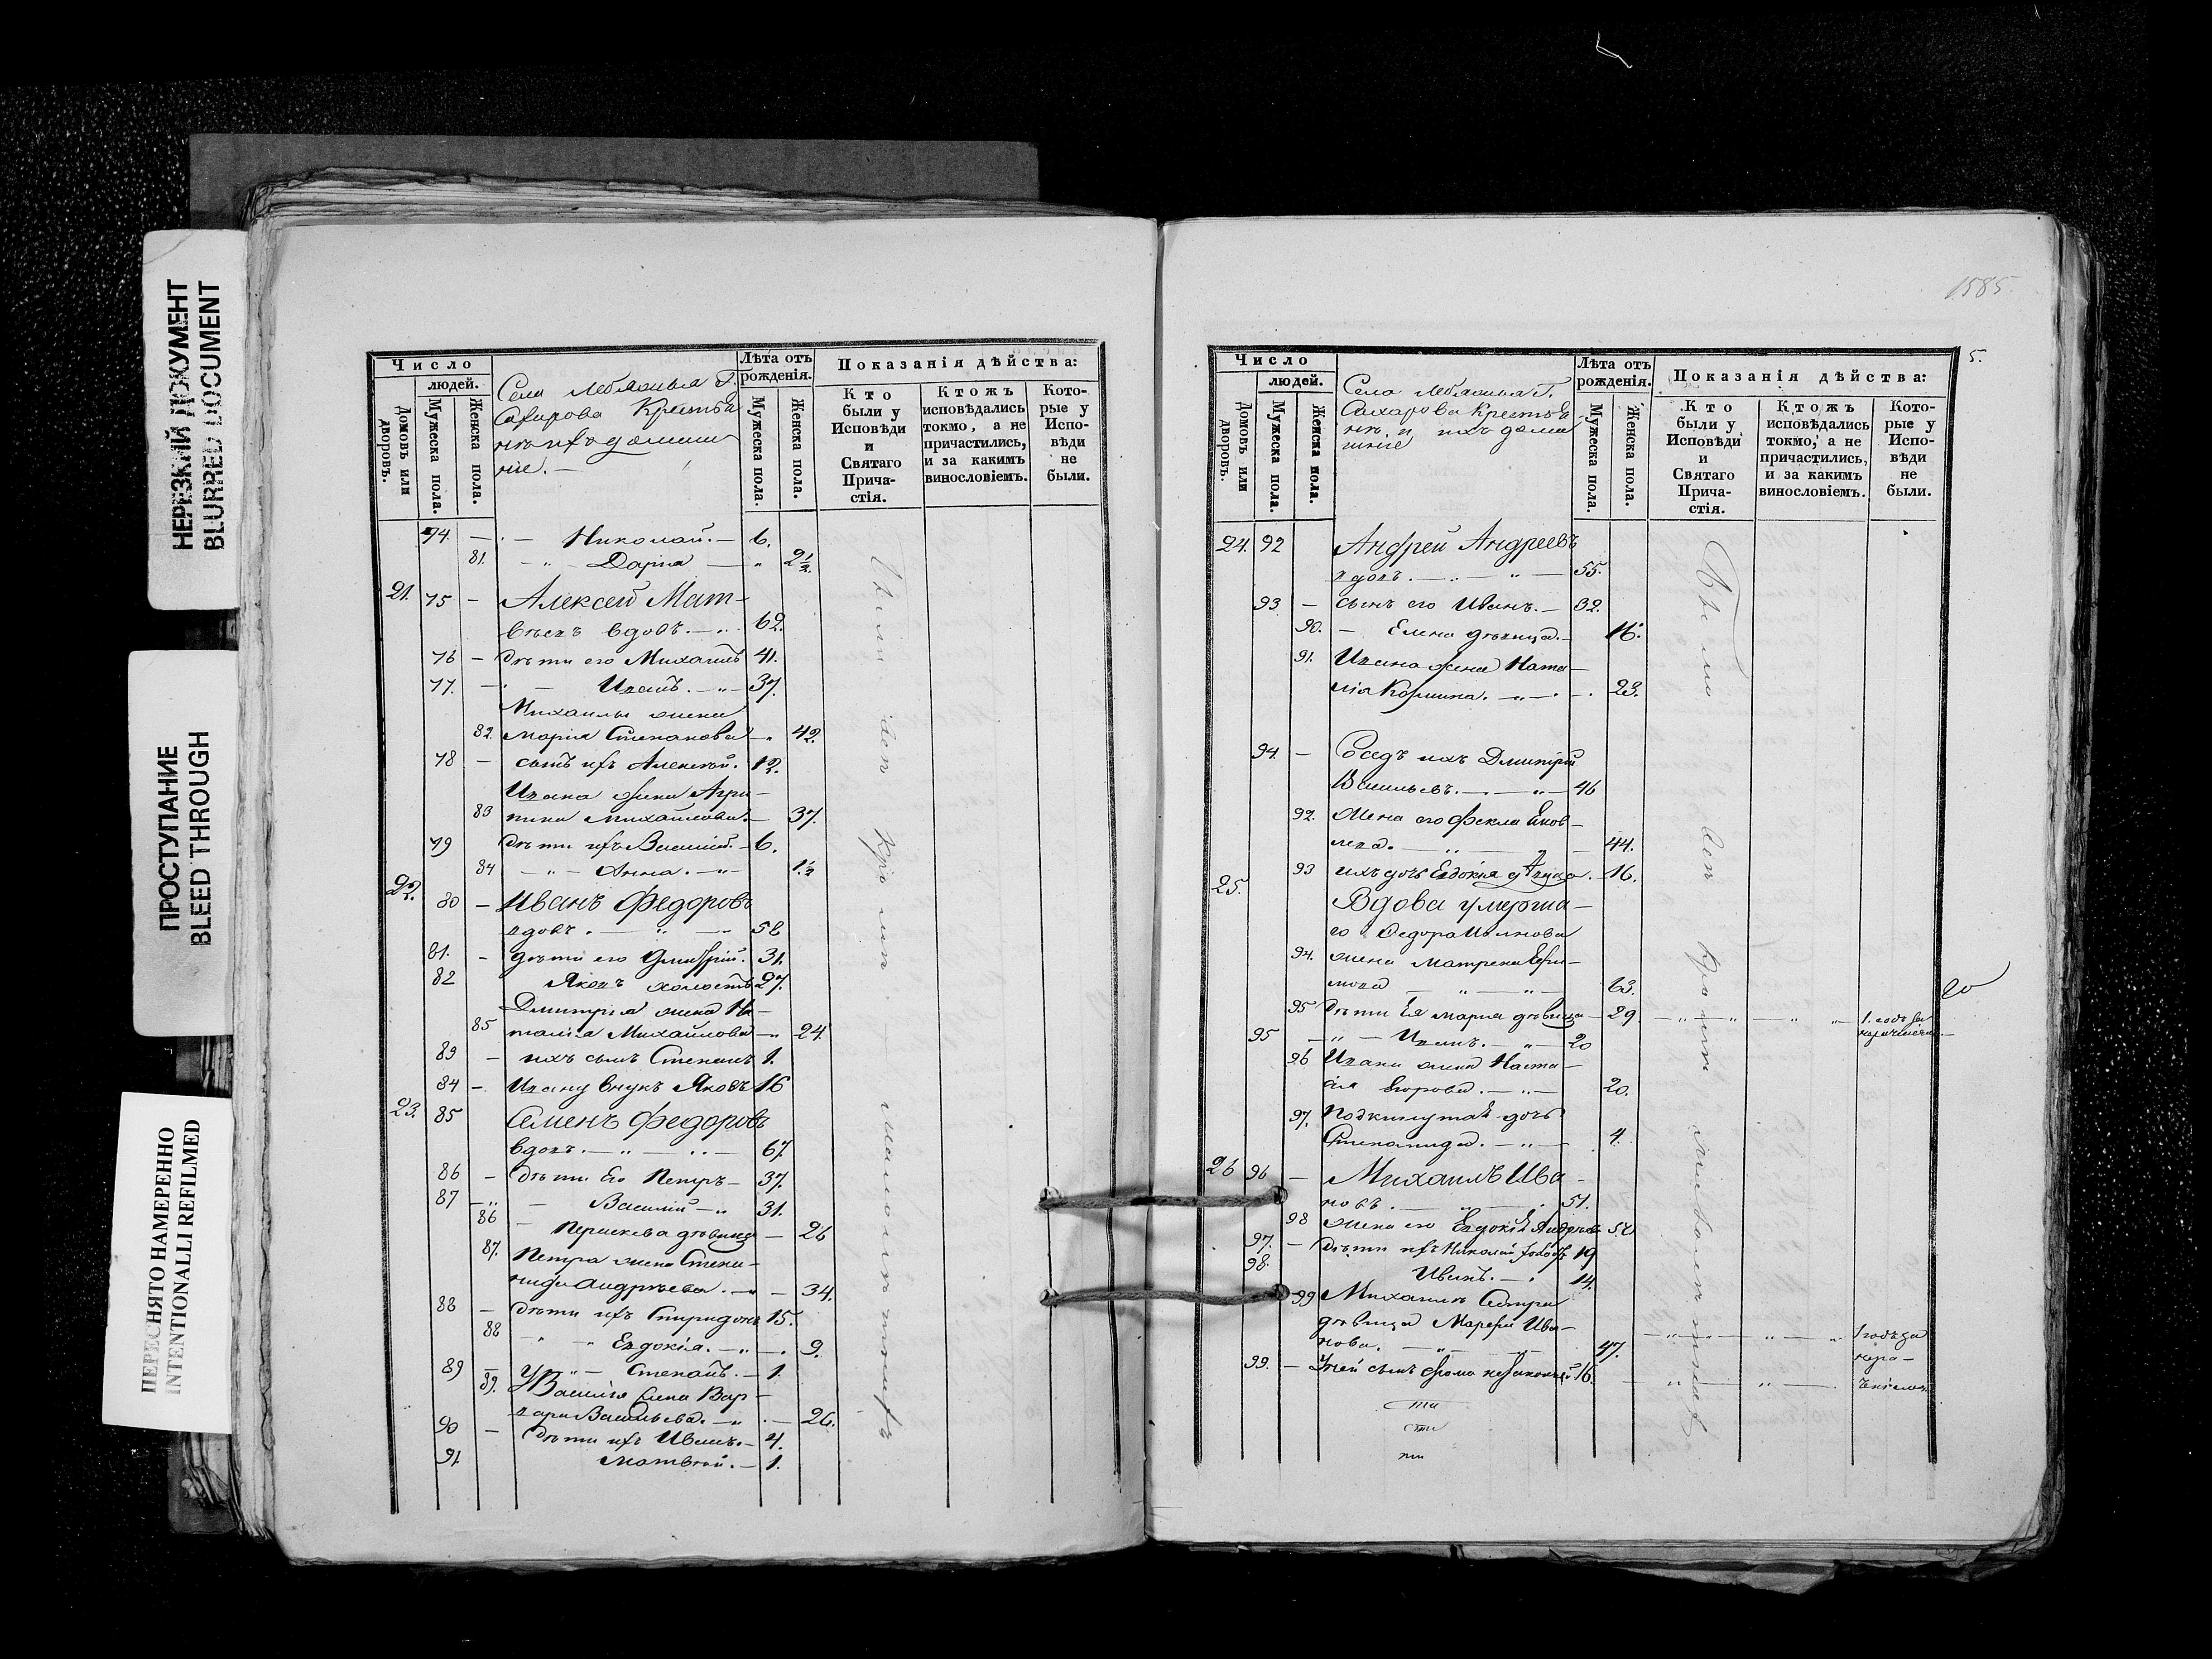 НЕРЕЗКИЙ ДОКУМЕНТ
BLURRED DOCUMENT
ПРОСТУПАНИЕ
BLEED THROUGH
ПЕРЕСНЯТО НАМЕРЕННО
INTENTIONALLI REFILMED
Число
людей.
Домовъ или дворовъ.
Мужеска пола.
Женска пола.
Села Лебяжья Г.
Сахарова Крестья
нѣ ихъ домаш
ніе. —
Лѣта отъ рожденія.
Мужеска пола.
Женска пола.
Показанія дѣйства:
Кто были у Исповѣди и Святаго Прича- стія.
Ктожъ исповѣдались токмо, а не причастились, и за какимъ винословіемъ.
Кото- рые у Испо- вѣди не были.
74 — — Николай. — 6.
81. — „ — Дарія — „ 2½
21. 75 — Алексей Мат-
вѣевъ вдовъ. — „ 62.
76 — дѣти его Михаилъ 41.
77. — — Иванъ. — „ — 37.
Михаилы жена
82. Марія Степанова — „ 42.
78 — сынъ ихъ Алексей. 12.
Ивана жена Агри-
83 пина Михайлова. — 37.
79 дѣти ихъ Василій. — 6.
84 — „ — Анна. — „ — 1½
22. 80 — Иванъ Федоровъ
вдовъ. — „ — „ 58
81. — дѣти его Дмитрій. 31.
82 Яковъ холостъ 27.
Дмитрія жена На-
85 талія Михайлова — „ 24.
83 — ихъ сынъ Степанъ 1.
84 — Ивану внукъ Яковъ 16
23. 85 Семенъ Федоровъ
вдовъ. — „ — „ — 67.
86 — дѣти Его Петръ — 37.
87 — „ — Василій — „ 31.
86 — Пераскева дѣвица — 26
87. Петра жена Степа-
нида Андрѣева. — „ — 34.
88 — дѣти ихъ Спиридонъ 15.
88 — „ „ Евдокія. — „ — 9.
89 — „ — Степанъ. — 1.
89. У Василія жена Вар-
вара Васильева. — „ — 26.
90 — дѣти ихъ Иванъ. — 4.
91. Матвѣй. — 1.
1585.
5.
Число
людей.
Домовъ или дворовъ.
Мужеска пола.
Женска пола.
Села Лебяжья Г.
Сахарова Крестья
нѣ и ихъ дома
шніе
Лѣта отъ рожденія.
Мужеска пола.
Женска пола.
Показанія дѣйства:
Кто были у Исповѣди и Святаго Прича- стія.
Ктожъ исповѣдались токмо, а не причастились, и за какимъ винословіемъ.
Кото- рые у Испо- вѣди не были.
24. 92 Андрей Андреевъ
вдовъ. — „ — „ — 55.
93 — сынъ его Иванъ. — 32.
90. — Елена дѣвица. — 16.
91. Ивана жена Ната-
лія Козмина. — „ — . 23.
94. — Сосѣдъ ихъ Дмитрій
Васильевъ. — „ — 46
92. Жена его Фекла Яков-
лева. — „ — „ — 44.
93 ихъ дочь Евдокія дѣвица. — 16.
25. Вдова умерша-
го Федора Иванова
94. жена Матрена Ефи-
мова — „ — „ — 63.
95 дѣти Ея Марія дѣвица — 29. — „ — „ — „ — „ 1. годъ за
95 — „ — Иванъ. — „ — 20
96 Ивана жена Наста-
сія Егорова. — „ — 20.
97. Подкинутая дочь
Степанида. — „ — 4.
20
26 96 — Михаилъ Ива-
новъ. — „ — „ 51.
98 жена его Евдокія Андрѣева 50
97. — дѣти ихъ Николай холостъ 19
98. Иванъ. — „ 14.
99 Михаила Сестра
дѣвица Марфа Ива-
нова. — „ — 47. — „ — „ — „ 1 годъ за
99. — У ней сынъ Фома незаконный 16. — „ — „ —